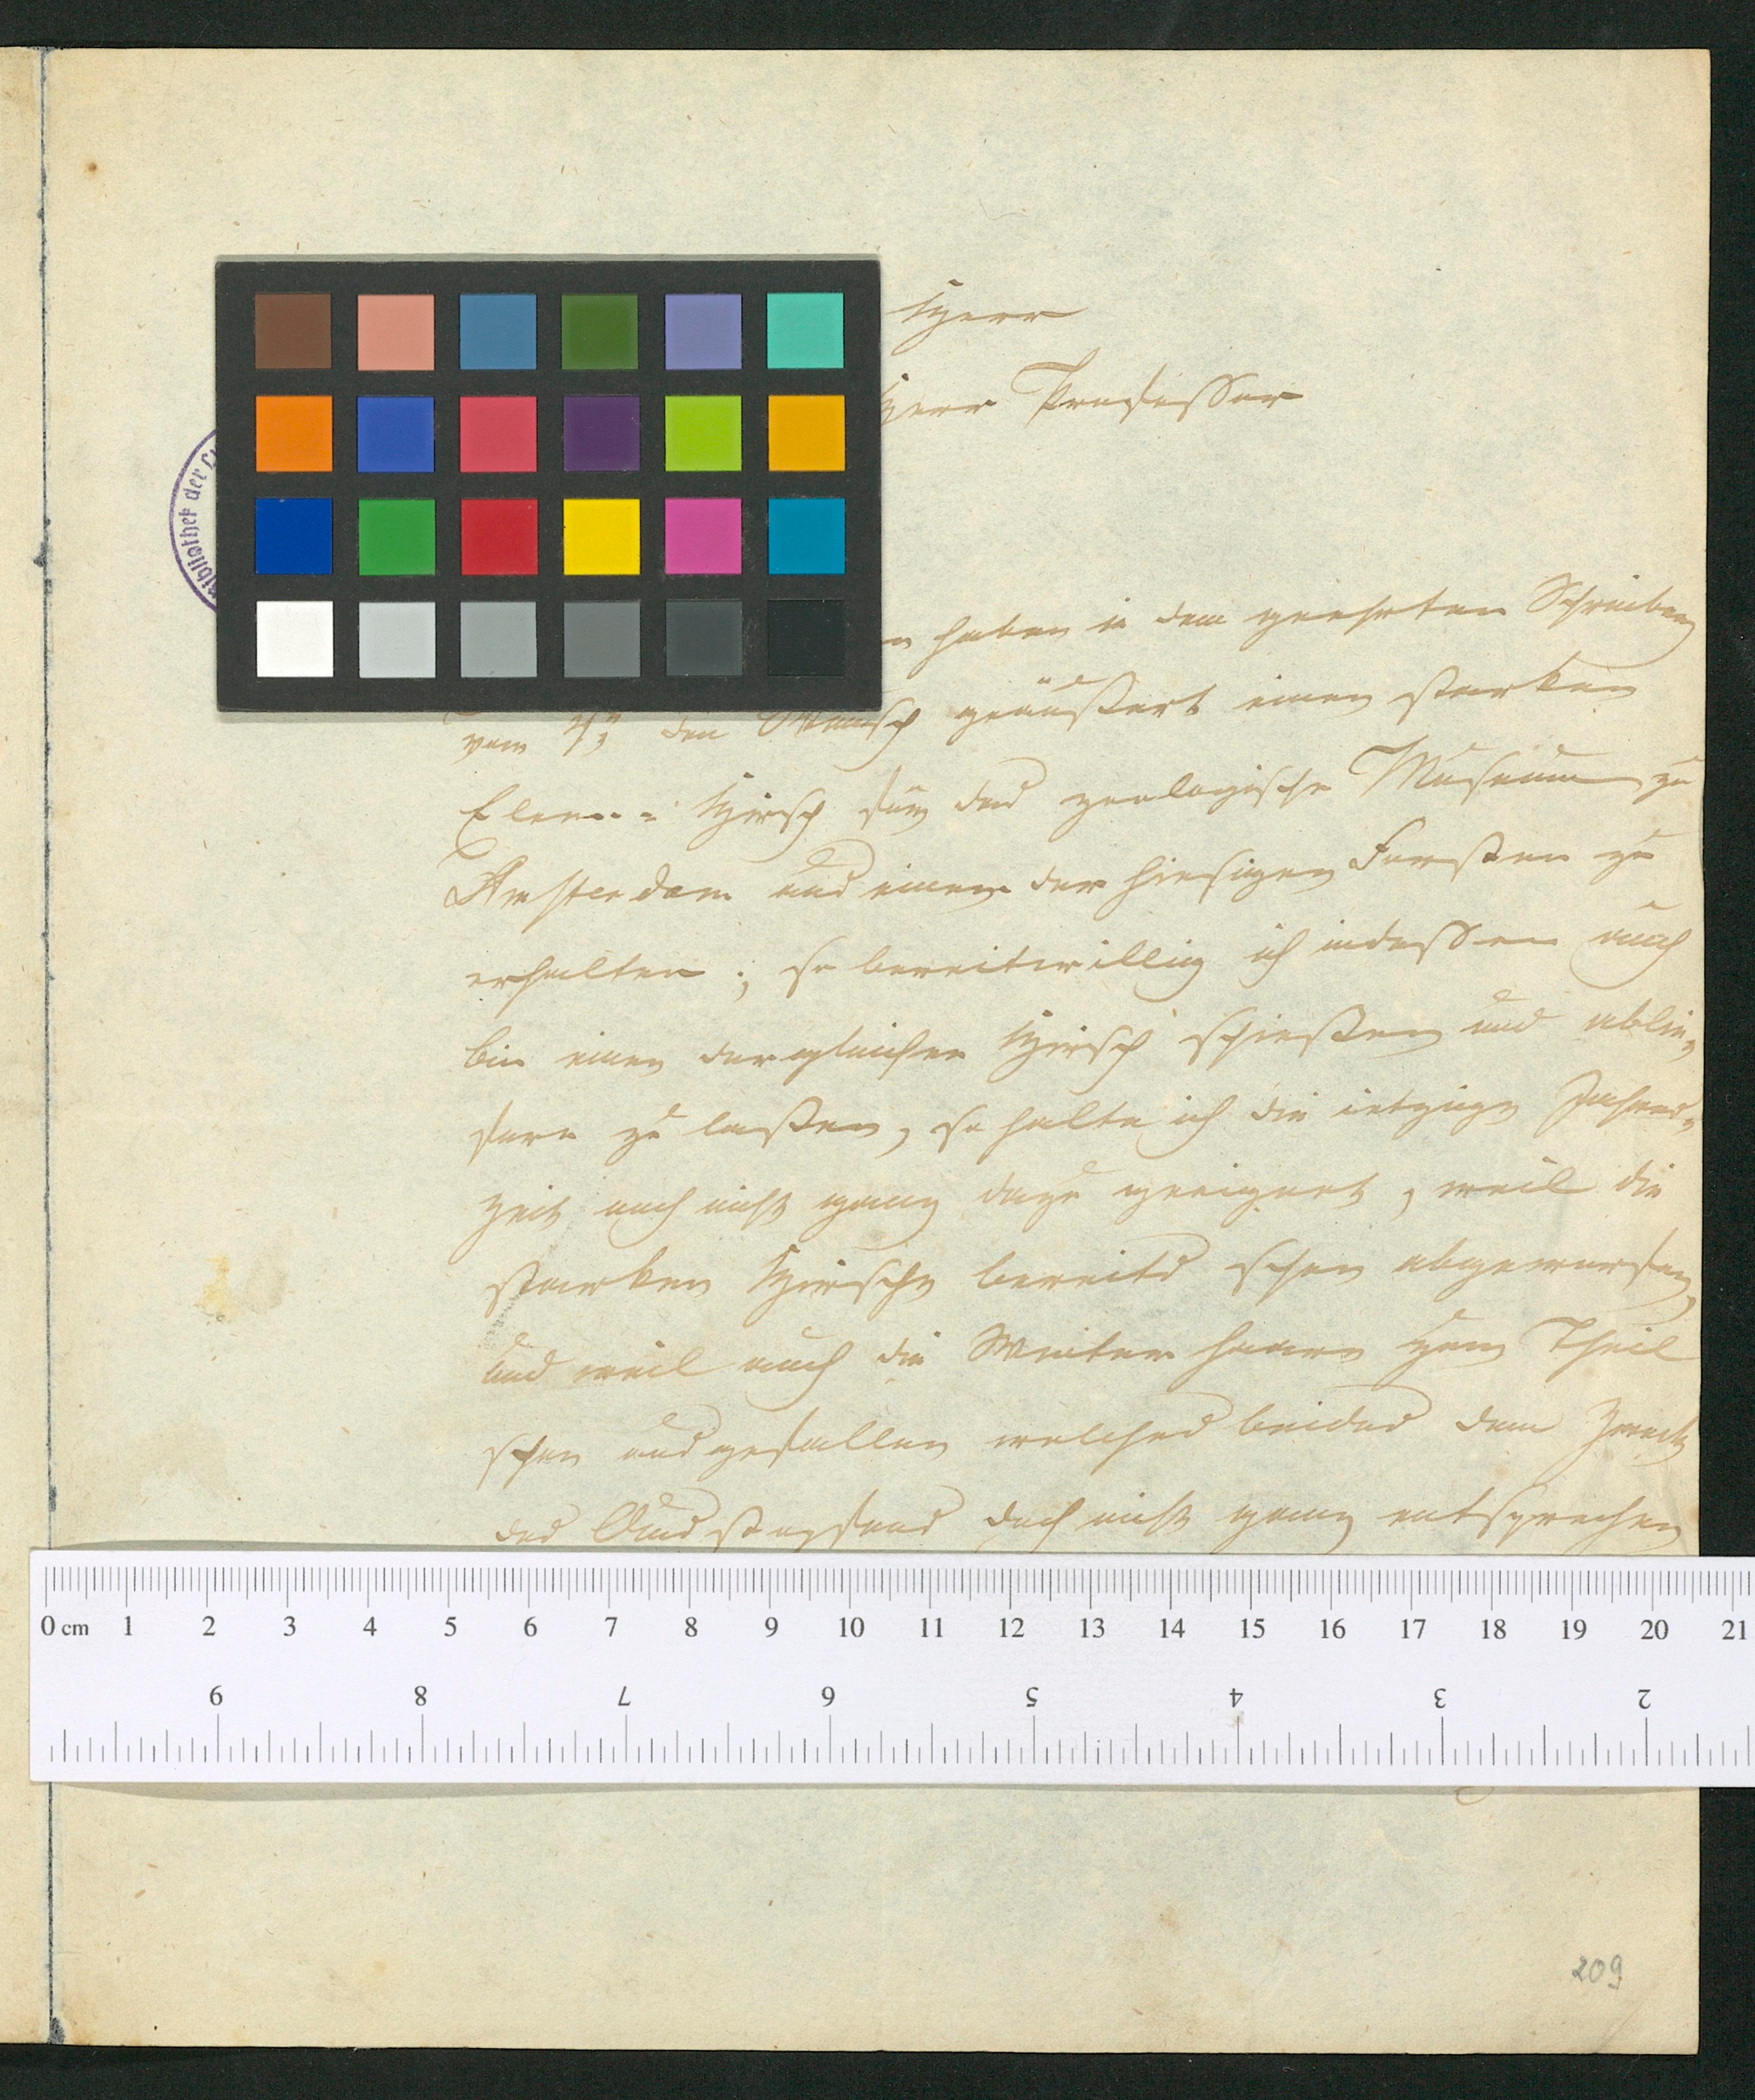 Herr
Herr Professor
bibliothek der
haben in dem geehrten Schreiben
vom den Wunsch geäußert einen starken
Elenn = Hirsch für das zoologische Museum zu
Amsterdam aus einem der hiesigen Forsten zu
erhalten; so bereitwillig ich indessen auch
bin einen dergleichen Hirsch schießen und ablie,
fern zu laßen, so halte ich die ietzige Jahres,
zeit noch nicht ganz dazu geeignet, weil die
starken Hirsche bereits schon abgeworfen,
und weil auch die Winter haare zum Theil
schon ausgefallen welches beides dem Zweck
des Ausstopfens doch nicht ganz entsprechen
0 cm 1 2 3 4 5 6 7 8 9 10 11 12 13 14 15 16 17 18 19 20 21
9 8 7 6 5 4 3 2
209